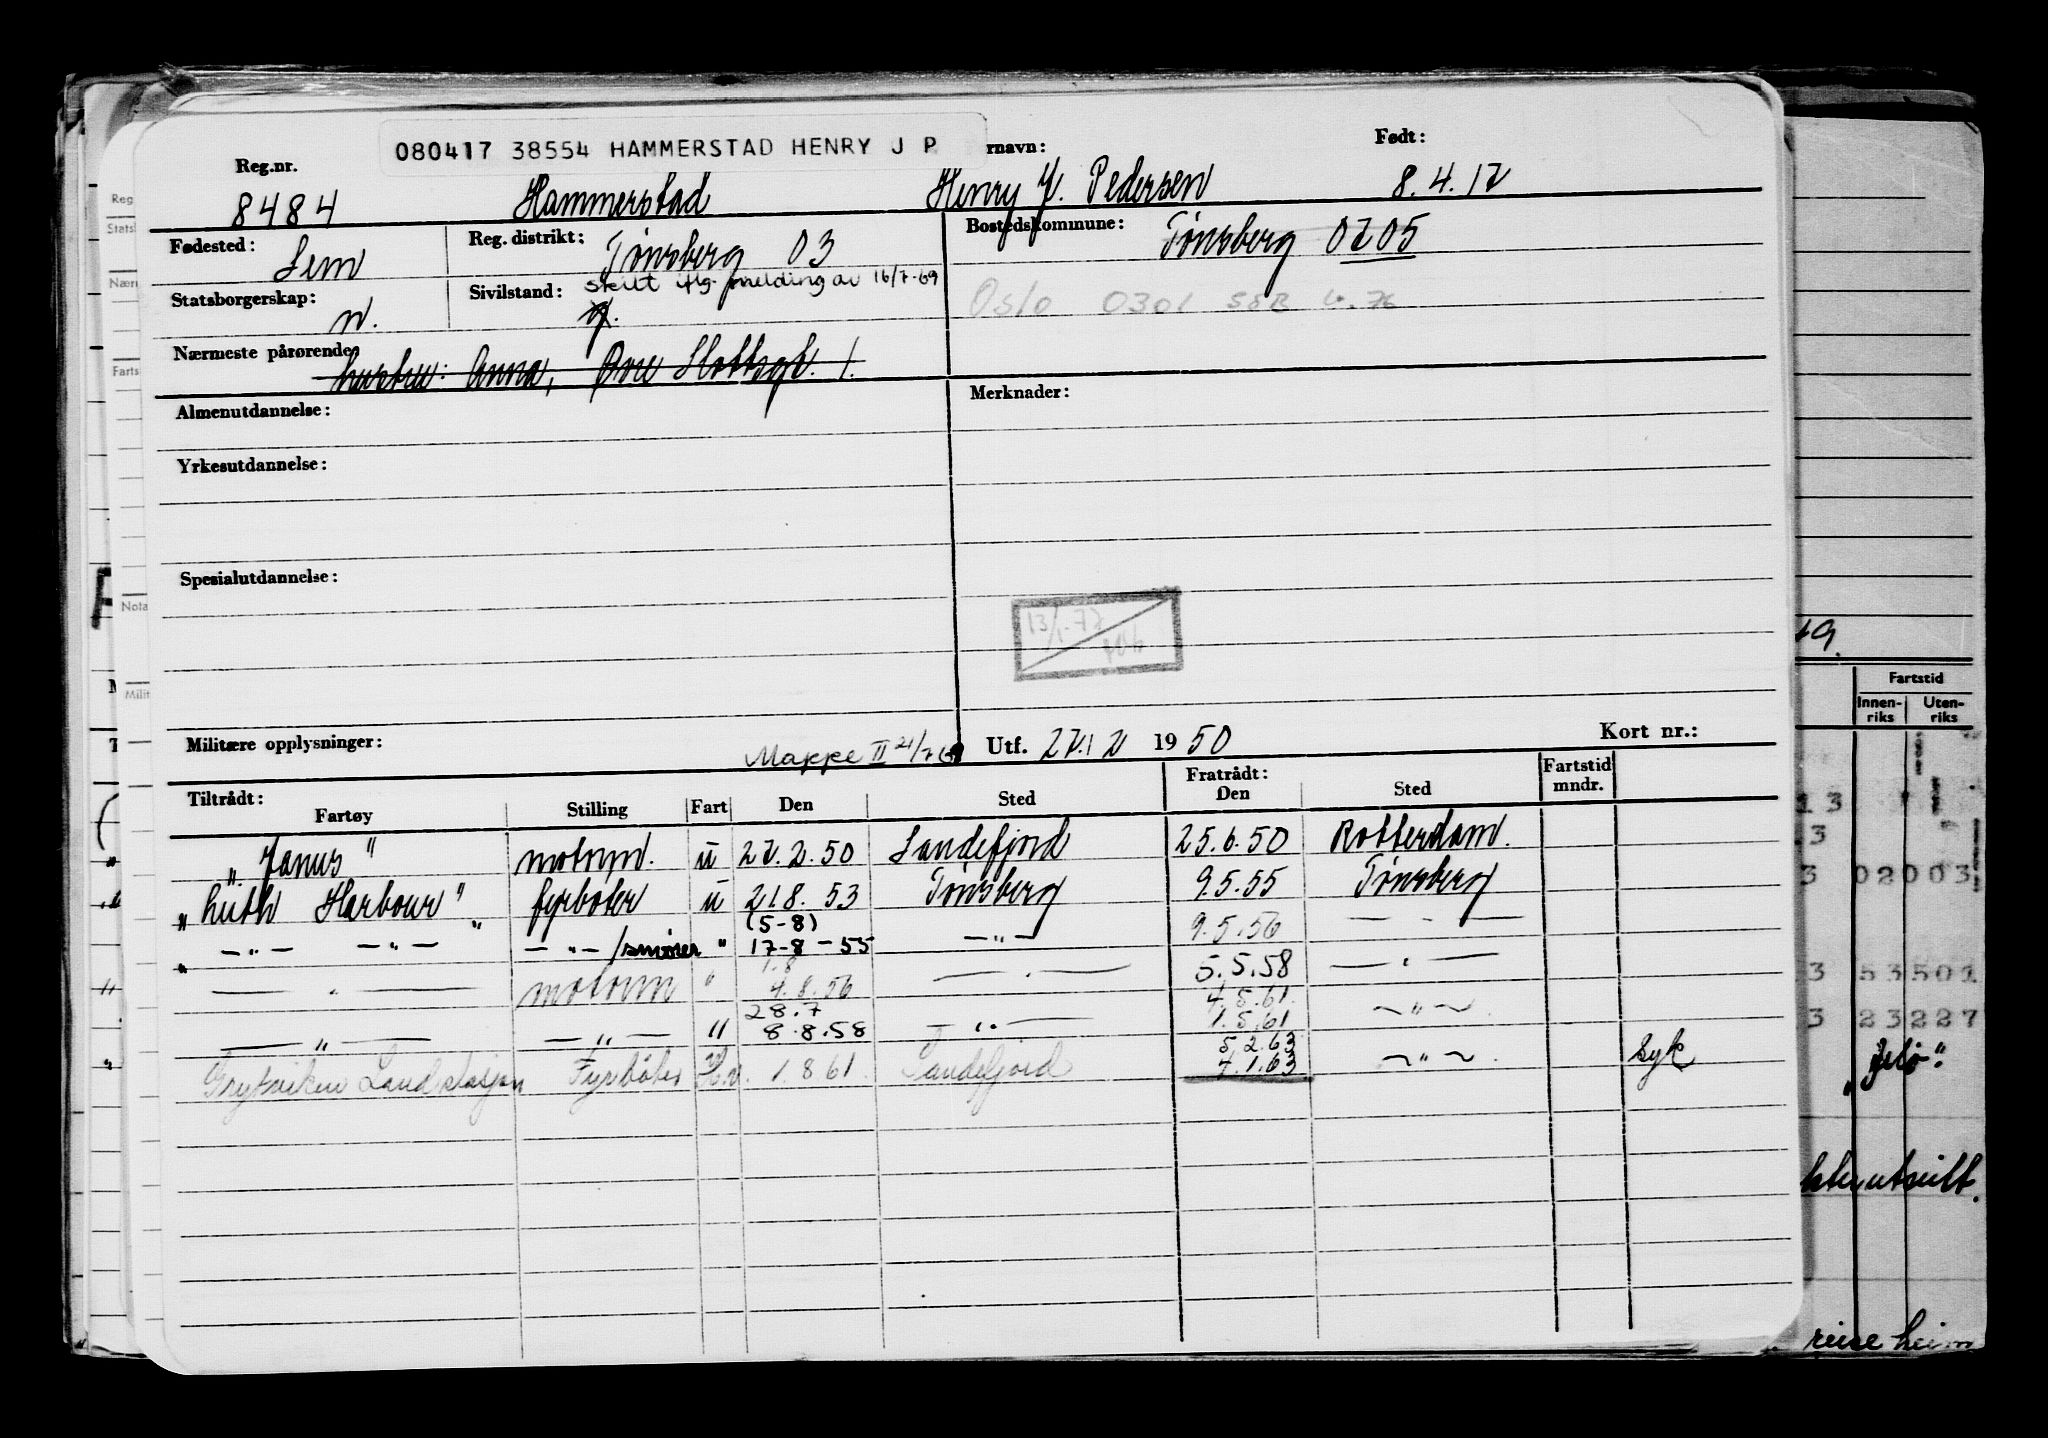 080417 38554 HAMMERSTAD HENRY J P
Reg.nr. rnavn: Født:
8484 Hammerstad Henry J. Pedersen 8.4.17
Fødested: Sem Reg. distrikt: Tønsberg 03 Bostedskommune: Tønsberg 0705
Statsborgerskap: n. Sivilstand: skilt iflg. melding av 16/7-69 g. Oslo 0301
Nærmeste pårørende: hustru: Anna, Øvre Slottsgt. 1.
Almenutdannelse: Merknader:
Yrkesutdannelse:
Spesialutdannelse:
13/1-72
Militære opplysninger: Mappe II 21/7 69 Utf. 27/2 1950 Kort nr.:
Tiltrådt: Fratrådt: Fartstid
Fartøy Stilling Fart Den Sted Den Sted mndr.
"Janus" motorm. u 27.2.50 Sandefjord 25.6.50 Rotterdam.
"Leith Harbour" fyrbøter u 21.8.53 Tønsberg 9.5.55 Tønsberg
(5-8)
" — " — — " — — " — /smører " 17-8-55 — " — 9.5.56 — " —
1.8
— " — motorm " 4.8.56 — " — 5.5.58 — " —
28.7 4.5.61.
— " — — " — " 8.8.58 — " — 1.5.61 — " —
5.2.63
Grytviken Landstasjon Fyrbøter 1.8.61 Sandefjord 4.1.63 — " — syk
Reg
Statsl
Nærn
Farts
Nota
Milit
19.
Fartstid
Innen-riks Uten-riks
13
3
3 02 003
3 53 501
3 23 227
"Jelø"
utsvilt.
reise heim